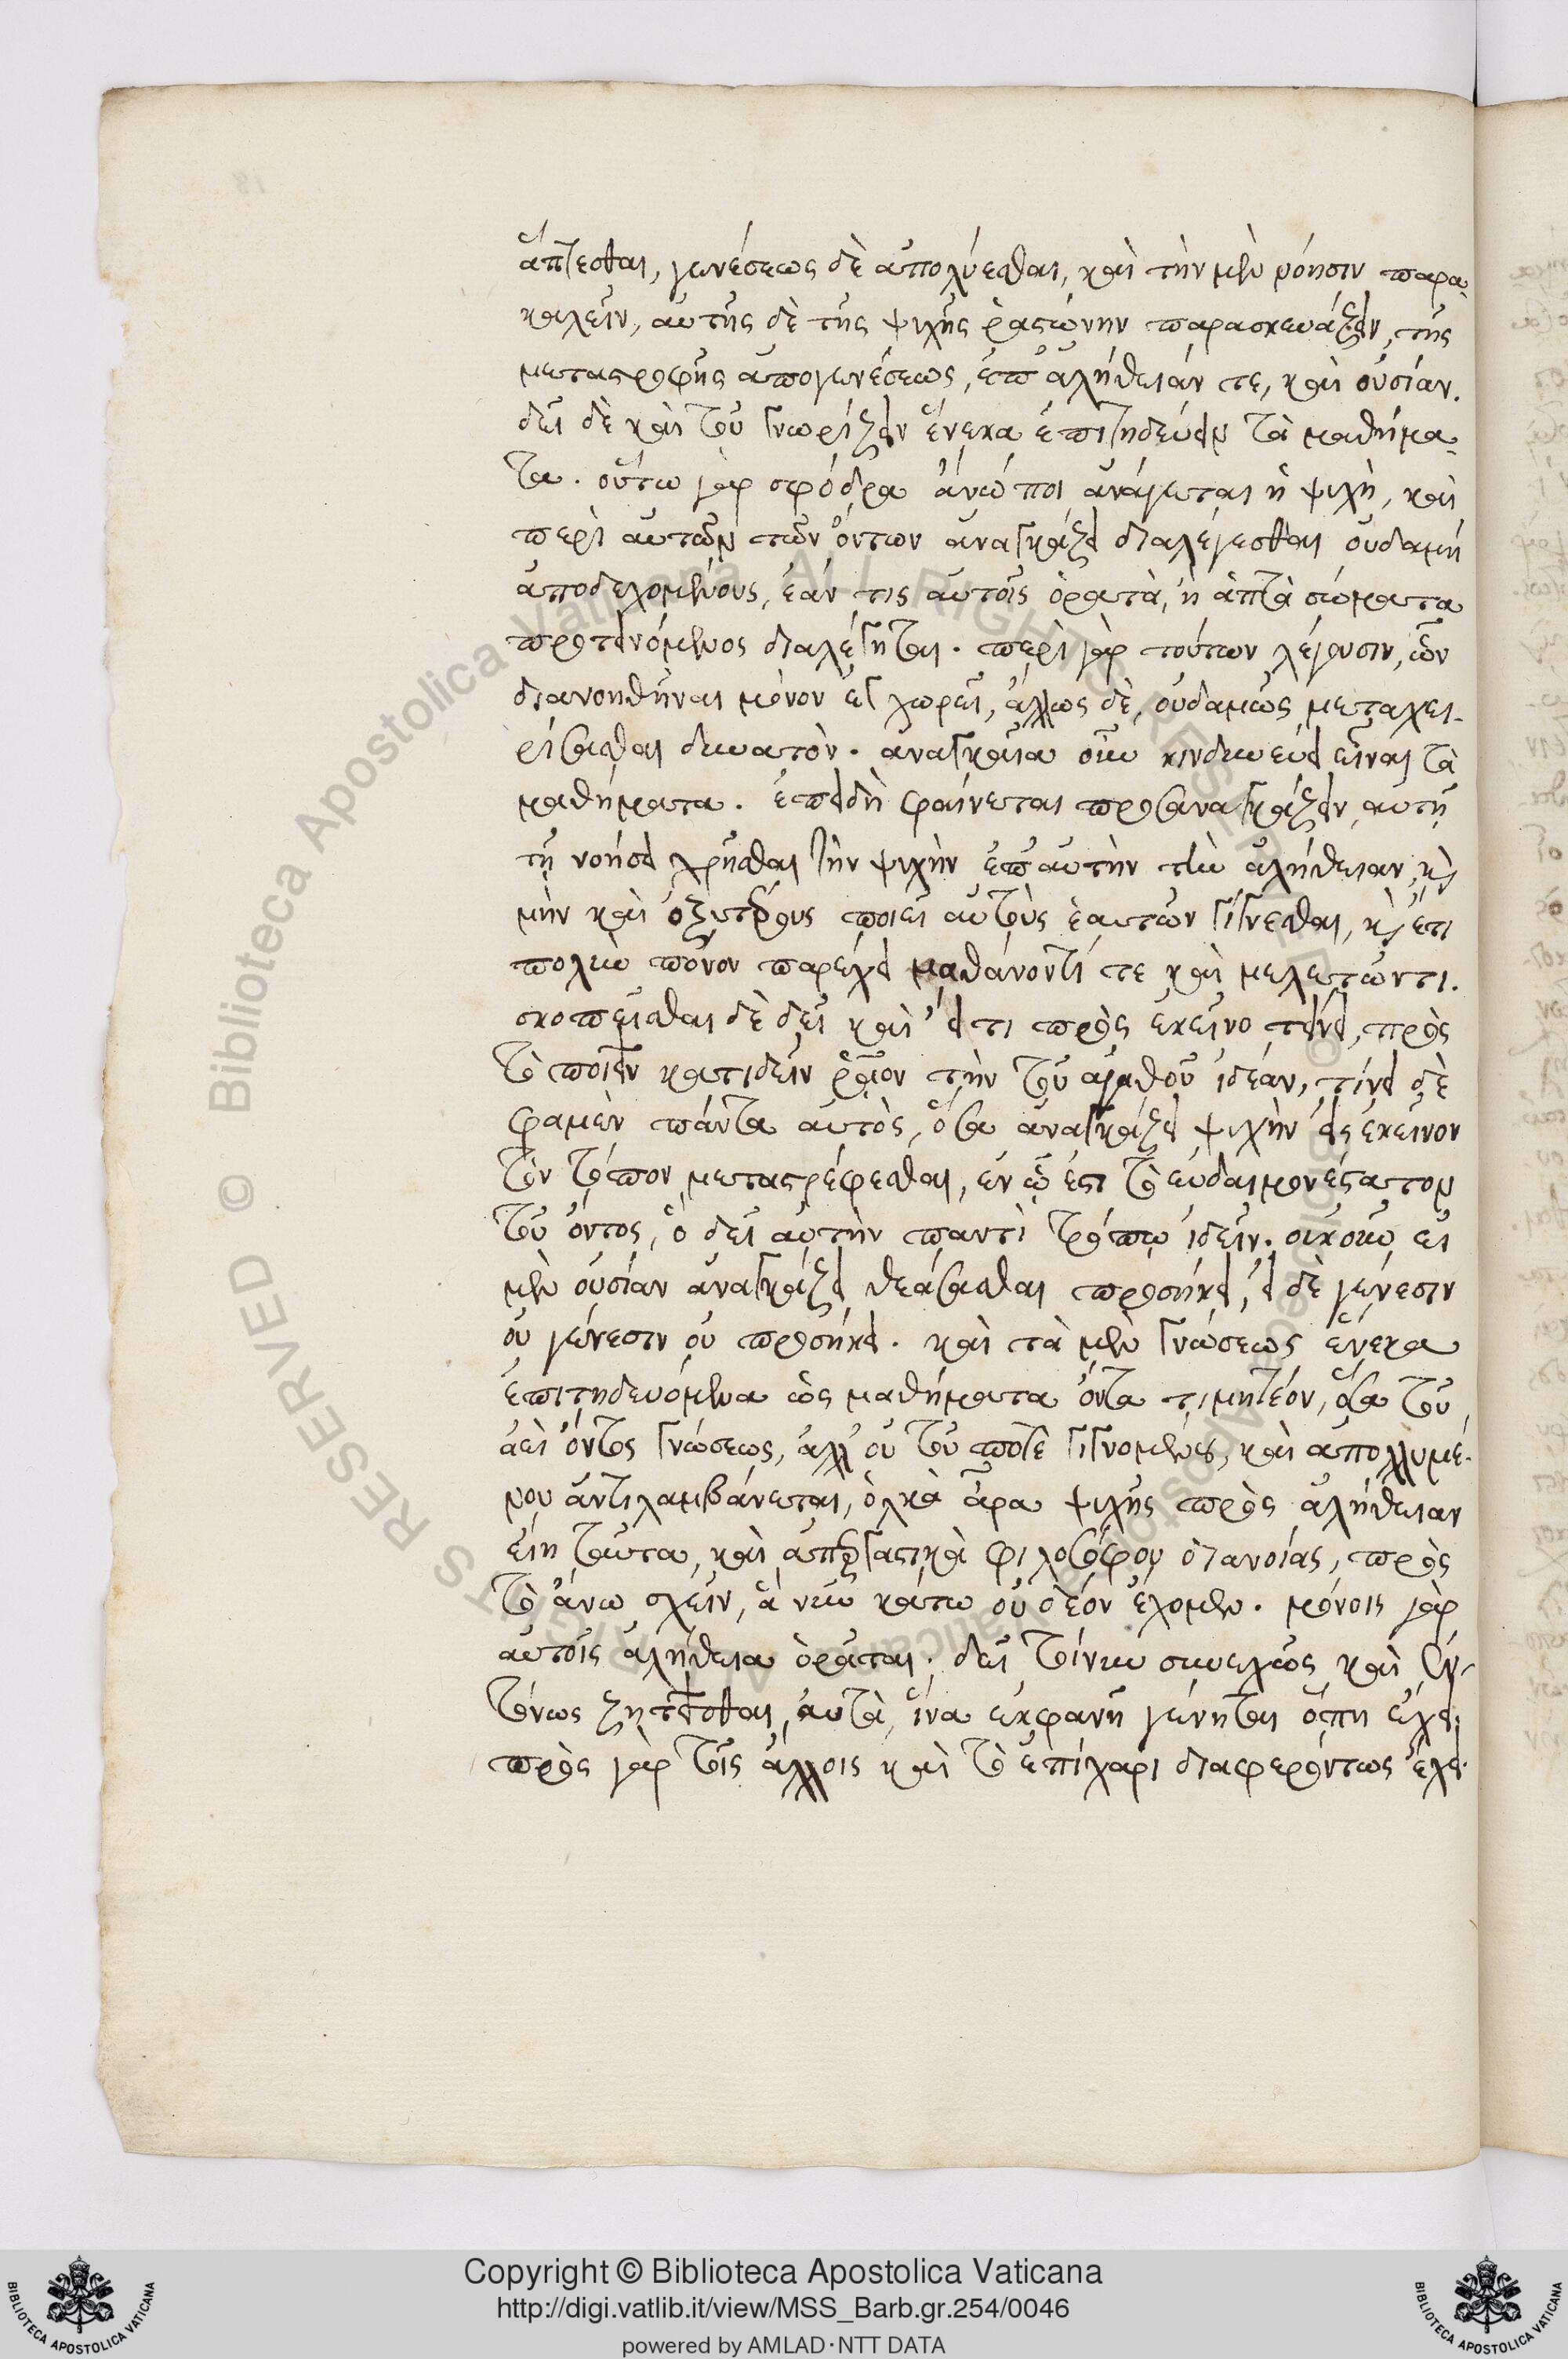 ἅπτεσθαι, γενέσεως δὲ ἀπολύεσθαι, καὶ τὴν μὲν νόησιν παρα-
καλεῖν, αὐτῆς δὲ τῆς ψυχῆς ῥαστώνην παρασκευάζειν, τῆς
μεταστροφῆς ἀπογενέσεως, ἐπ' ἀλήθειάν τε, καὶ οὐσίαν.
δεῖ δὲ καὶ τοῦ γνωρίζειν ἕνεκα ἐπιτηδεύειν τὰ μαθήμα-
τα. οὕτω γὰρ σφόδρα ἄνω ποι ἀνάγεται ἡ ψυχὴ, καὶ
περὶ αὐτῶν τῶν ὄντων ἀναγκάζει διαλέγεσθαι οὐδαμῆ
ἀποδεχομένους, ἐάν τις αὐτοῖς ὁρατὰ, ἢ ἁπτὰ σώματα
προτεινόμενος διαλέγηται. περὶ γὰρ τούτων λέγουσιν, ὧν
διανοηθῆναι μόνον ἐγχωρεῖ, ἄλλως δὲ, οὐδαμῶς μεταχει-
ρίσασθαι δυνατὸν. ἀναγκαῖα οὖν κινδυνεύει εἶναι τὰ
μαθήματα. ἐπειδὴ φαίνεται προσαναγκάζειν αὐτῇ
τῇ νοήσει χρῆσθαι τὴν ψυχὴν ἐπ' αὐτὴν τὴν ἀλήθειαν, καὶ
μὴν καὶ ὀξυτέρους ποιεῖ αὐτοὺς ἑαυτῶν γίγνεσθαι, καὶ ἔτι
πολὺν πόνον παρέχει μαθάνοντί τε καὶ μελετῶντι.
σκοπεῖσθαι δὲ δεῖ καὶ εἴ τι πρὸς ἐκεῖνο τείνει, πρὸς
τὸ ποιεῖν κατιδεῖν ῥᾷον τὴν τοῦ ἀγαθοῦ ἰδέαν, τίνει δὲ
φαμὲν πάντα αὐτὸς, ὅσα ἀναγκάζει ψυχὴν εἰς ἐκεῖνον
τὸν τόπον μεταστρέφεσθαι, ἐν ᾧ ἐστι τὸ εὐδαιμονέστατον
τοῦ ὄντος, ὃ δεῖ αὐτὴν παντὶ τρόπῳ ἰδεῖν. οὐκοῦν εἰ
μὲν οὐσίαν ἀναγκάζει θεάσασθαι προσήκει, εἰ δὲ γένεσιν
οὐ γένεσιν οὐ προσήκει. καὶ τὰ μὲν γνώσεως ἕνεκα
ἐπιτηδευόμενα ὡς μαθήματα ὄντα τιμητέον, ὅσα τοῦ
ἀεὶ ὄντος γνώσεως, ἀλλ' οὐ τοῦ ποτὲ γιγνομένου, καὶ ἀπολλυμέ-
νου ἀντιλαμβάνεται, ὁλκὰ ἄρα ψυχῆς πρὸς ἀλήθειαν
εἴη ταῦτα, καὶ ἀπεργαστικὰ φιλοσόφου διανοίας, πρὸς
τὸ ἄνω σχεῖν, ἃ νῦν κάτω οὐ δέον ἔχομεν. μόνοις γὰρ
αὐτοῖς ἀλήθεια ὁρᾶται. δεῖ τοίνυν συνεχῶς καὶ συν-
τόνως ζητεῖσθαι αὐτὰ, ἵνα ἐκφανῆ γένηται ὅπη ἔχει.
πρὸς γὰρ τοῖς ἄλλοις καὶ τὸ ἐπίχαρι διαφερόντως ἔχει.
Copyright © Biblioteca Apostolica Vaticana
http://digi.vatlib.it/view/MSS_Barb.gr.254/0046
powered by AMLAD·NTT DATA